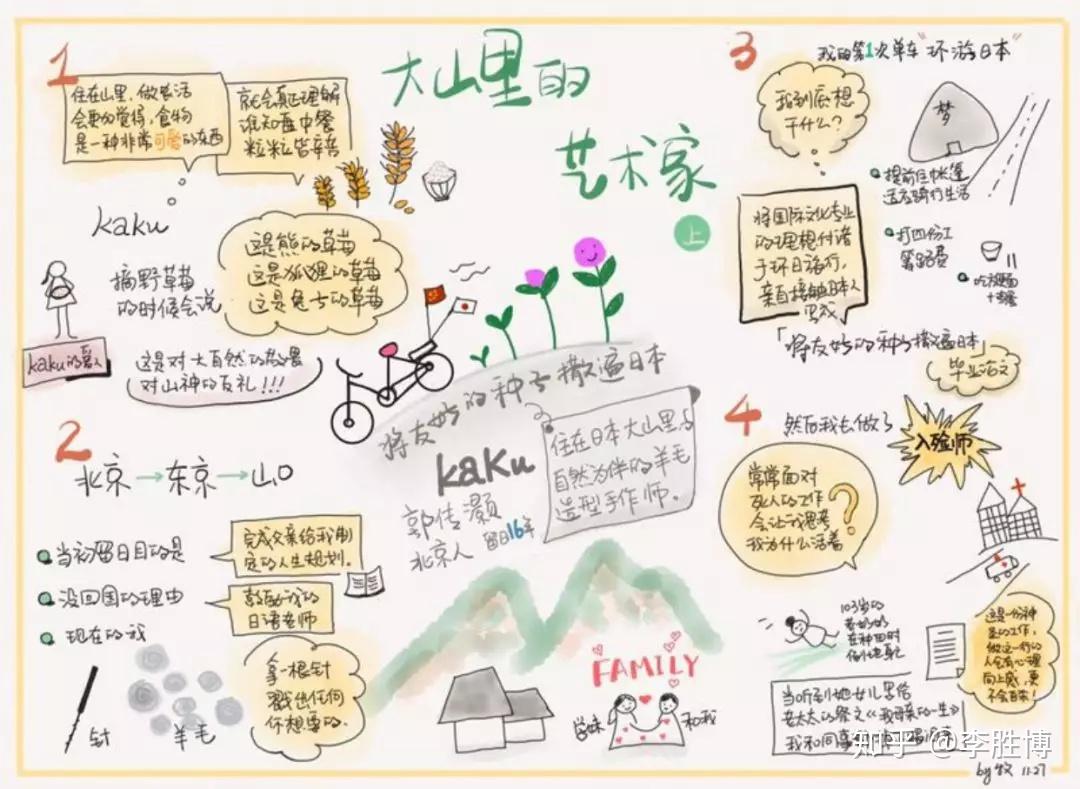 大山里的
艺术家
上
1
住在山里，做农活
会更加觉得，食物
是一种非常可贵的东西
就会真正理解
谁知盘中餐
粒粒皆辛苦
kaku
摘野草莓
的时候会说
这是熊的草莓
这是狐狸的草莓
这是兔子的草莓
kaku的爱人
这是对大自然的敬畏
对山神的友礼!!!
2
北京→东京→山口
当初留日目的是
完成父亲给我制
定的人生规划.
没回国的理由
鼓励我的
日语老师
现在的我
拿一根针
戳出任何
你想要的.
针
羊毛
将友好的种子撒遍日本
kaku
郭传灏
北京人 留日16年
住在日本大山里与
自然为伴的羊毛
造型手作师.
FAMILY
学妹
和我
3
我的第1次单车"环游日本"
我到底想
干什么?
梦
将国际文化专业
的理想付诸
于环日旅行,
亲自接触日本人
提前住帐篷
适应骑行生活
打四份工
筹路费
「将友好的种子撒遍日本」
毕业论文
4
然后我去做了
入殓师
常常面对
死人的工作
会让我思考
我为什么活着
?
103岁的
老奶奶
在种田时
倒地死
这是一份神
圣的工作,
做这一行的
人会有心理
向上感,更
不会自杀!
当听到她女儿写给
老太太的祭文《我母亲的一生》
我和同事
知乎 @李胜博
by 牧 11.27